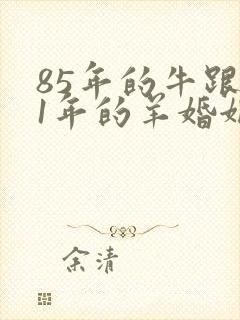 85年的牛跟
1年的羊婚姻
余清